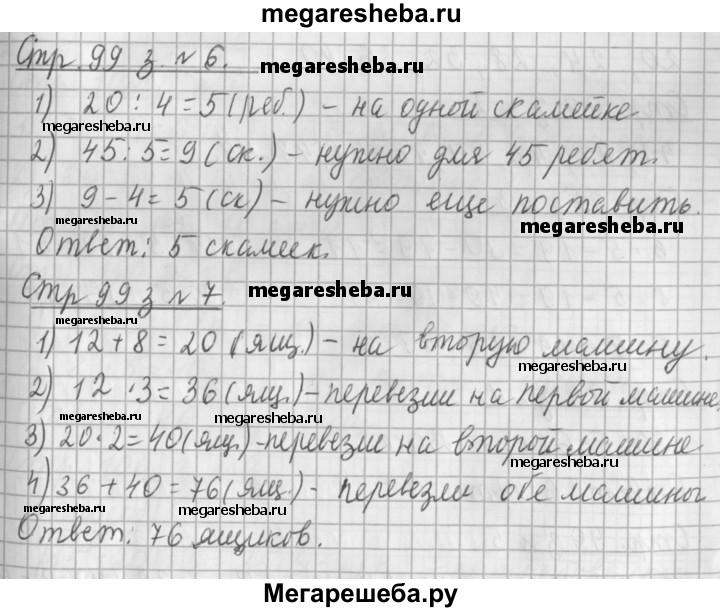 megaresheba.ru
Стр. 99 з. № 6.
megaresheba.ru
1) 20 : 4 = 5 (реб.) – на одной скамейке
megaresheba.ru
2) 45 : 5 = 9 (ск.) – нужно для 45 ребят.
3) 9 – 4 = 5 (ск) – нужно еще поставить.
megaresheba.ru
megaresheba.ru
Ответ: 5 скамеек.
Стр 99 з № 7.
megaresheba.ru
megaresheba.ru
1) 12 + 8 = 20 (ящ.) – на вторую машину.
megaresheba.ru
2) 12 · 3 = 36 (ящ.) – перевезли на первой машине
megaresheba.ru
megaresheba.ru
3) 20 · 2 = 40 (ящ.) – перевезли на второй машине
megaresheba.ru
4) 36 + 40 = 76 (ящ.) – перевезли обе машины
megaresheba.ru
Ответ: 76 ящиков.
Мегарешеба.ру